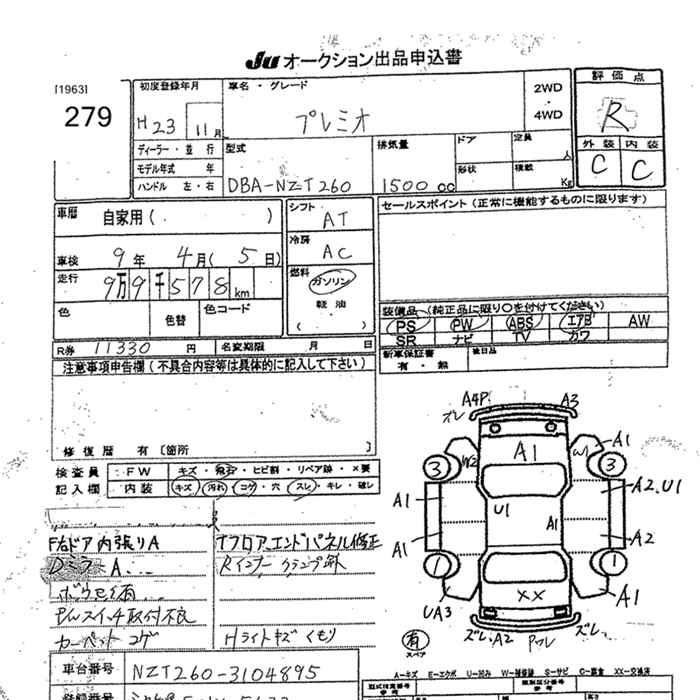 JU オークション出品申込書
[1963]
279
初度登録年月
H23 11月
車名・グレード
プレミオ
2WD
・
4WD
評価点
R
外装 内装
C C
ディーラー・並行
モデル年式 年
ハンドル 左・右
型式
DBA-NZT260
排気量
1500 cc
ドア
形状
定員 人
積載 Kg
車歴 自家用( )
車検 9年 4月( 5日)
走行 9万9千578km
色
色替
色コード
シフト AT
冷房 AC
燃料 ガソリン
軽油
( )
セールスポイント(正常に機能するものに限ります)
装備品(純正品に限り○を付けてください)
PS PW ABS エアB AW
SR ナビ TV カワ
新車保証書 有・無
後日品
R券 11330円 名変期限 月 日
注意事項申告欄(不具合内容等は具体的に記入して下さい)
修復歴 有〔箇所 〕
検査員記入欄
FW キズ・飛石・ヒビ割・リペア跡・×要
内装 キズ・汚れ・コゲ・穴・スレ・キレ・破レ
F右ドア内張りA
Dミラー A...
ボウモイ有...
P/Wスイッチ取付不良
カーペットコゲ
Tフロア、エンドパネル修正
Rインナー クランプ跡
Hライトキズくもり
A4P
オレ
A3
A1
W2
W1
A1
3
3
A1
U1
A1
A2.U1
A1
A2
1
1
XX
A1
UA3
有
スペア
ズレ.A2
Pマフレ
ズレ.
車台番号 NZT260-3104895
登録番号
A=キズ E=エクボ U=凹み W=補修跡 S=サビ C=腐食 XX=交換済
型式指定番号
類別区分番号
参考
参考